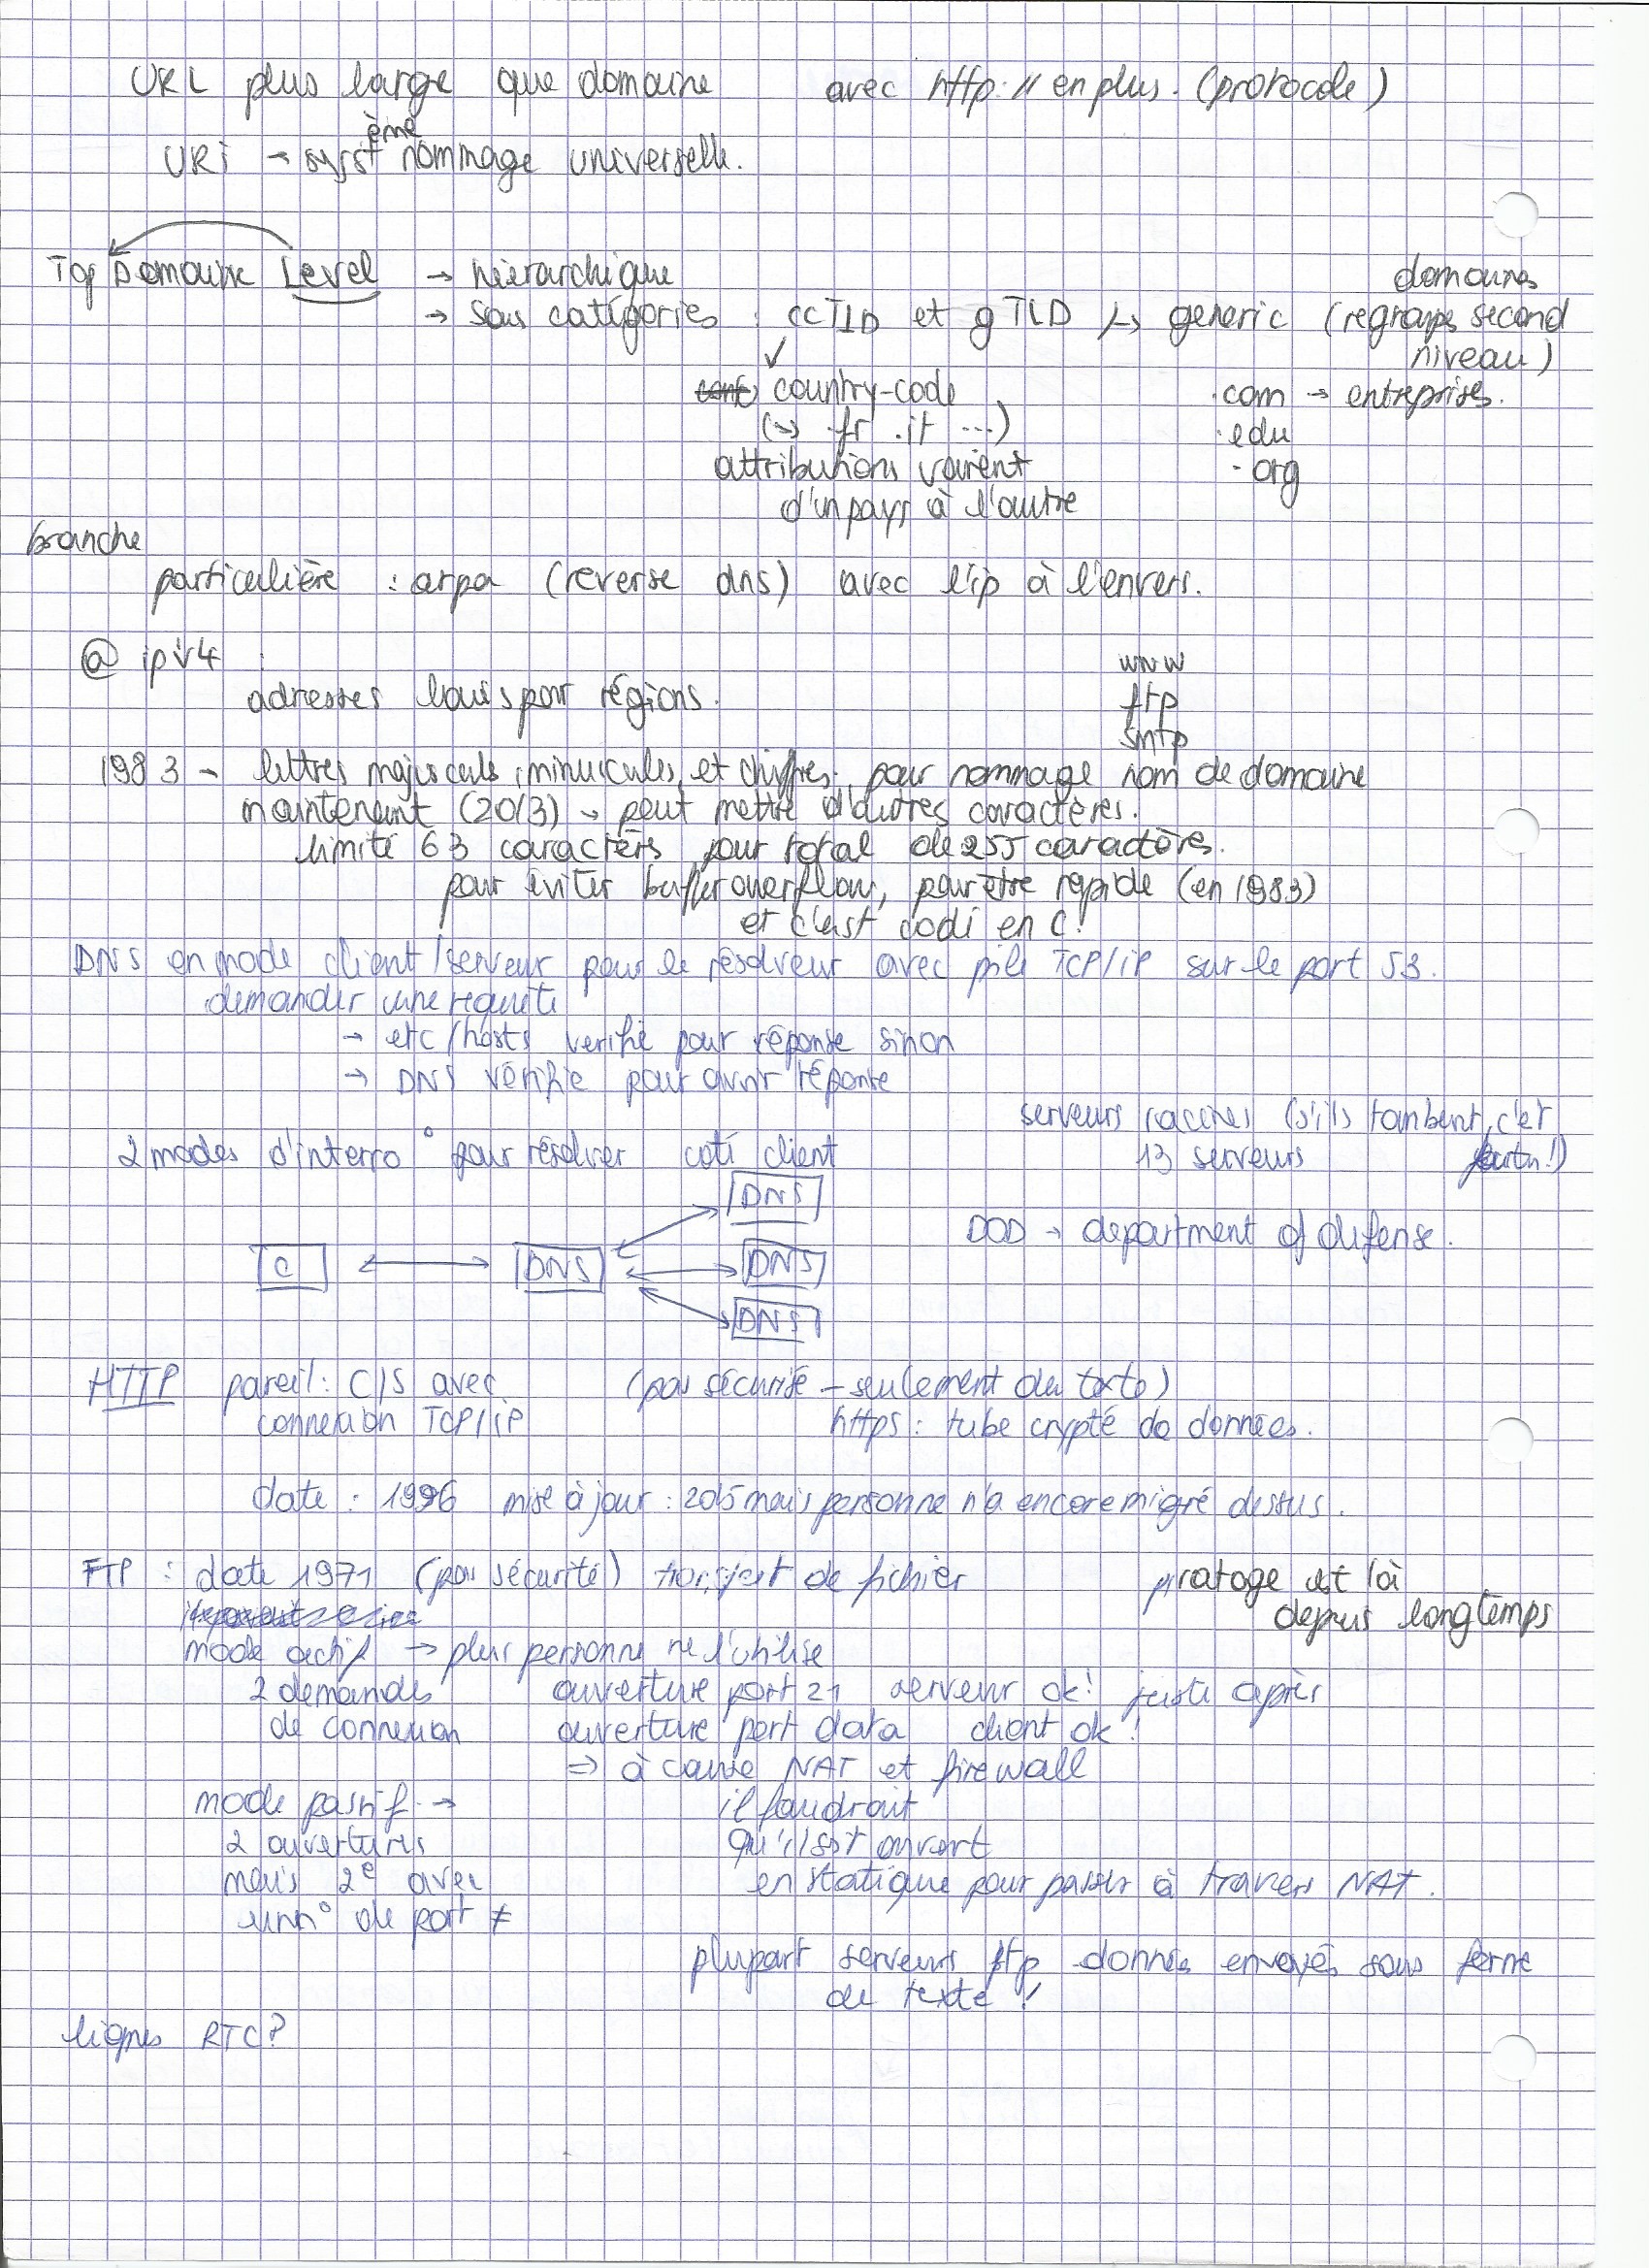 URL plus large que domaine avec http:// en plus. (protocole)
URi → système nommage universelle.
Top Domaine Level → hiérarchique
→ sous catégories : ccTLD et gTLD ↳ generic (regroupe domaines second niveau)
country-code
(→ .fr .it ...)
attributions varient
d'un pays à l'autre
.com → entreprises.
.edu
.org
branche
particulière : arpa (reverse dns) avec l'ip à l'envers.
@ ipv4 :
adresses par régions.
www
ftp
smtp
1983 → lettres majuscules, minuscules, et chiffres. pour nommage nom de domaine
maintenant (2013) → peut mettre d'autres caractères.
limité 63 caractères pour total de 255 caractères.
pour éviter buffer overflow, pour être rapide (en 1983)
et c'est codé en C!
DNS en mode client/serveur pour le résolveur avec pile TCP/iP sur le port 53.
demander une requête
→ etc/hosts vérifié pour réponse sinon
→ DNS vérifie pour avoir réponse
serveurs racines (s'ils tombent, c'est foutu!)
13 serveurs
2 modes d'interro° pour résolver coté client
DNS
DOD → department of defense.
C DNS DNS
DNS
HTTP pareil : C/S avec (pas sécurisé – seulement du texte)
connexion TCP/iP https : tube crypté de données.
date : 1996 mise à jour : 2015 mais personne n'a encore migré dessus.
FTP : date 1971 (pas sécurité) transfert de fichier
piratage est là
depuis longtemps
mode actif → plus personne ne l'utilise
2 demandes ouverture port 21 serveur ok! juste après
de connexion ouverture port data client ok!
⇒ à cause NAT et firewall
mode passif → il faudrait
2 ouvertures qu'il soit ouvert
mais 2e avec en statique pour passer à travers NAT.
un n° de port ≠
plupart serveurs ftp données envoyés sous forme
de texte !
lignes RTC?